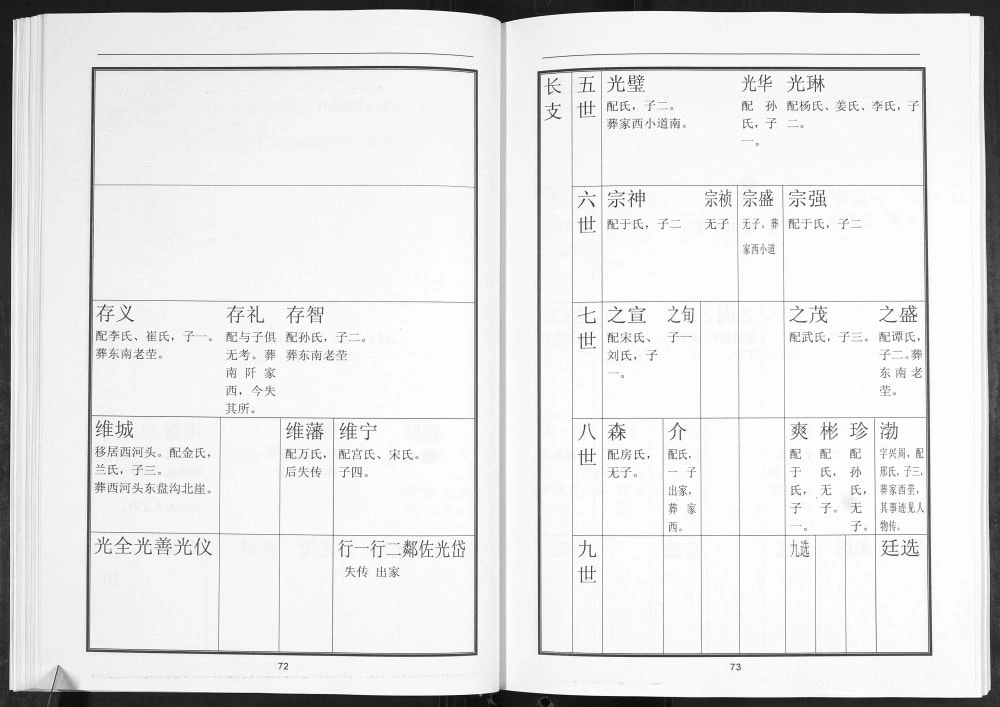 存义
配李氏、崔氏，子一。
葬东南老茔。
存礼
配与子俱
无考。葬
南阡家
西，今失
其所。
存智
配孙氏，子二。
葬东南老茔
维城
移居西河头。配金氏，
兰氏，子三。
葬西河头东盘沟北崖。
维藩
配万氏，
后失传
维宁
配宫氏、宋氏。
子四。
光全光善光仪
行一行二鄰佐光岱
失传 出家
72
长支
五世
光璧
配氏，子二。
葬家西小道南。
光华
配孙
氏，子
一。
光琳
配杨氏、姜氏、李氏，子
二。
六世
宗神
配于氏，子二
宗祯
无子
宗盛
无子。葬
家西小道
宗强
配于氏，子二
七世
之宣
配宋氏、
刘氏，子
一。
之旬
子一
之茂
配武氏，子三。
之盛
配谭氏，
子二。葬
东南老
茔。
八世
森
配房氏，
无子。
介
配氏，
一子
出家，
葬家
西。
爽
配
于
氏，
子
一。
彬
配
氏，
无
子。
珍
配
孙
氏，
无
子。
渤
字兴周，配
邢氏，子三，
葬家西茔，
其事迹见人
物传。
九世
九选
廷选
73